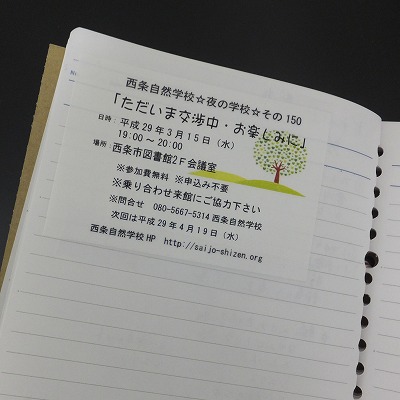 西条自然学校☆夜の学校☆その150
「ただいま交渉中・お楽しみに」
日時：平成29年3月15日（水）
19:00～20:00
場所：西条市図書館2F会議室
※参加費無料 ※申込み不要
※乗り合わせ来館にご協力下さい
※問合せ 080-5667-5314 西条自然学校
次回は平成29年4月19日（水）
西条自然学校HP http://saijo-shizen.org